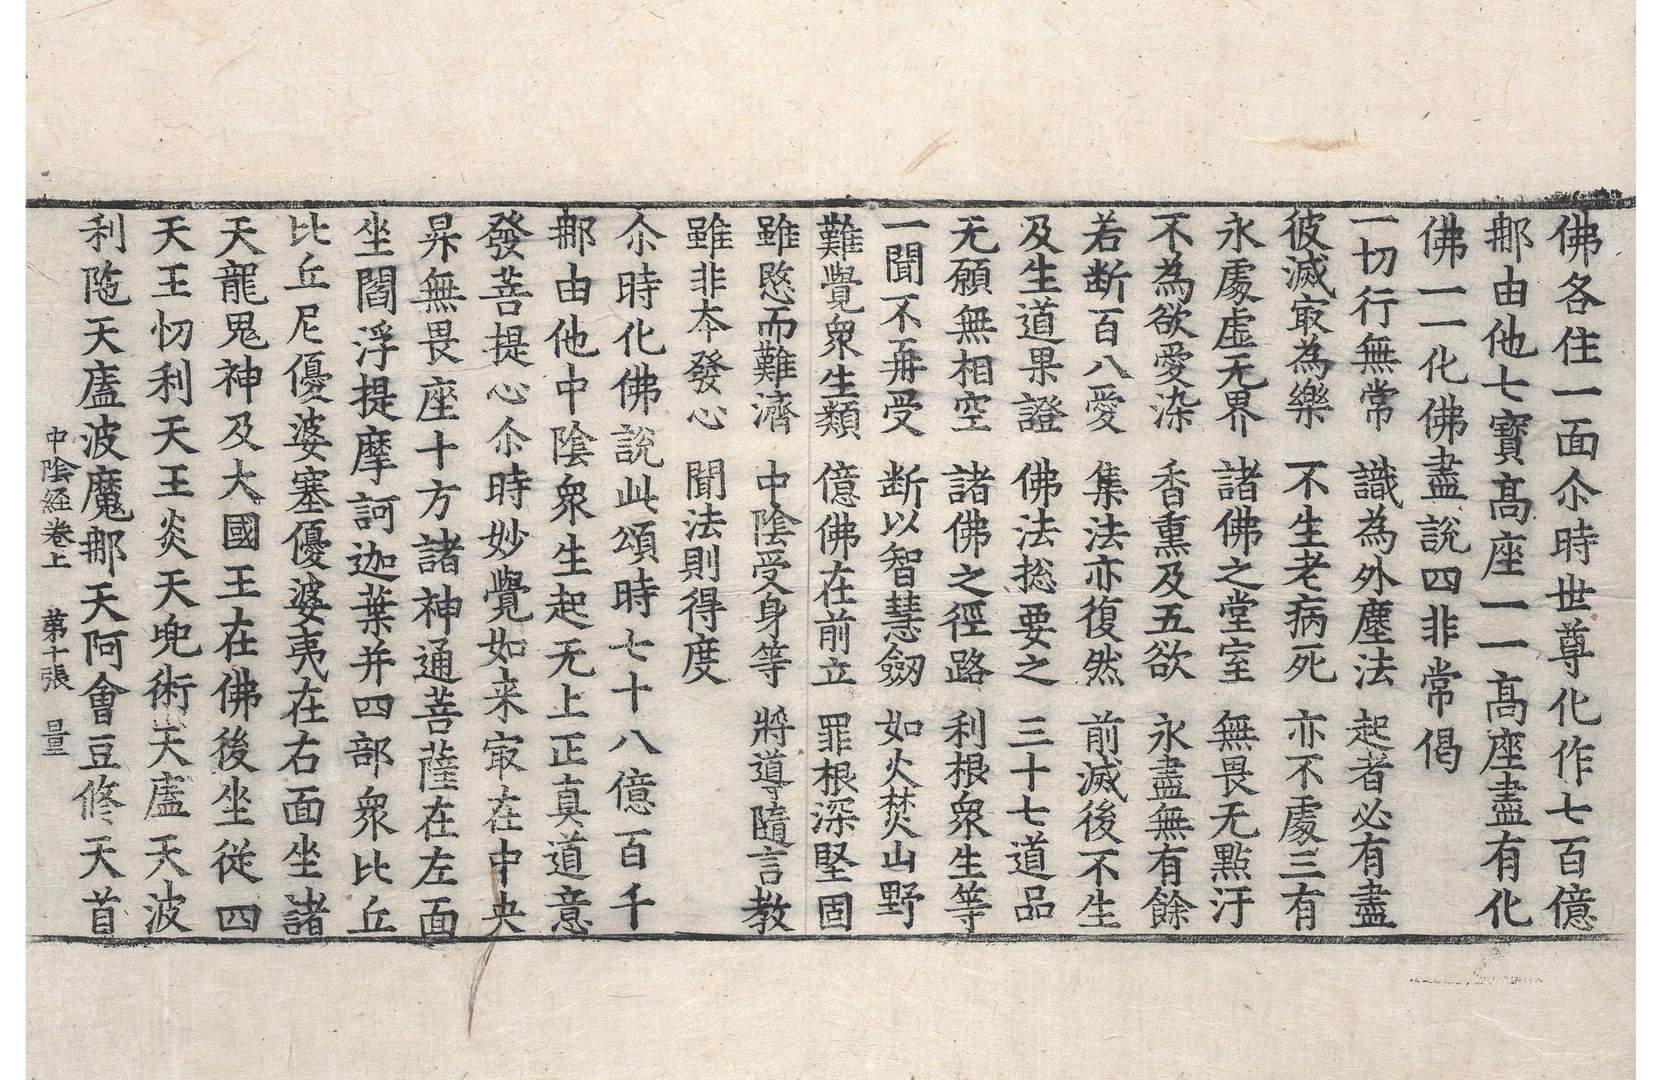 佛各住一面尒時世尊化作七百億
那由他七寶高座一一高座盡有化
佛一一化佛盡說四非常偈
一切行無常 識為外塵法 起者必有盡
彼滅㝡為樂 不生老病死 亦不處三有
永處虛无界 諸佛之堂室 無畏无點汙
不為欲愛染 香熏及五欲 永盡無有餘
若断百八愛 集法亦復然 前滅後不生
及生道果證 佛法捴要之 三十七道品
无願無相空 諸佛之徑路 利根衆生等
一聞不再受 断以智慧劔 如火焚山野
難覺衆生類 億佛在前立 罪根深堅固
雖愍而難濟 中陰受身等 將導隨言教
雖非夲發心 聞法則得度
尒時化佛說此頌時七十八億百千
那由他中陰衆生起无上正真道意
發菩提心尒時妙覺如来㝡在中央
昇無畏座十方諸神通菩薩在左面
坐閻浮提摩訶迦葉并四部衆比丘
比丘尼優婆塞優婆夷在右面坐諸
天龍鬼神及大國王在佛後坐從四
天王忉利天王炎天兜術天盧天波
利陁天盧波魔那天阿會豆修天首
中陰経卷上 苐十張 量